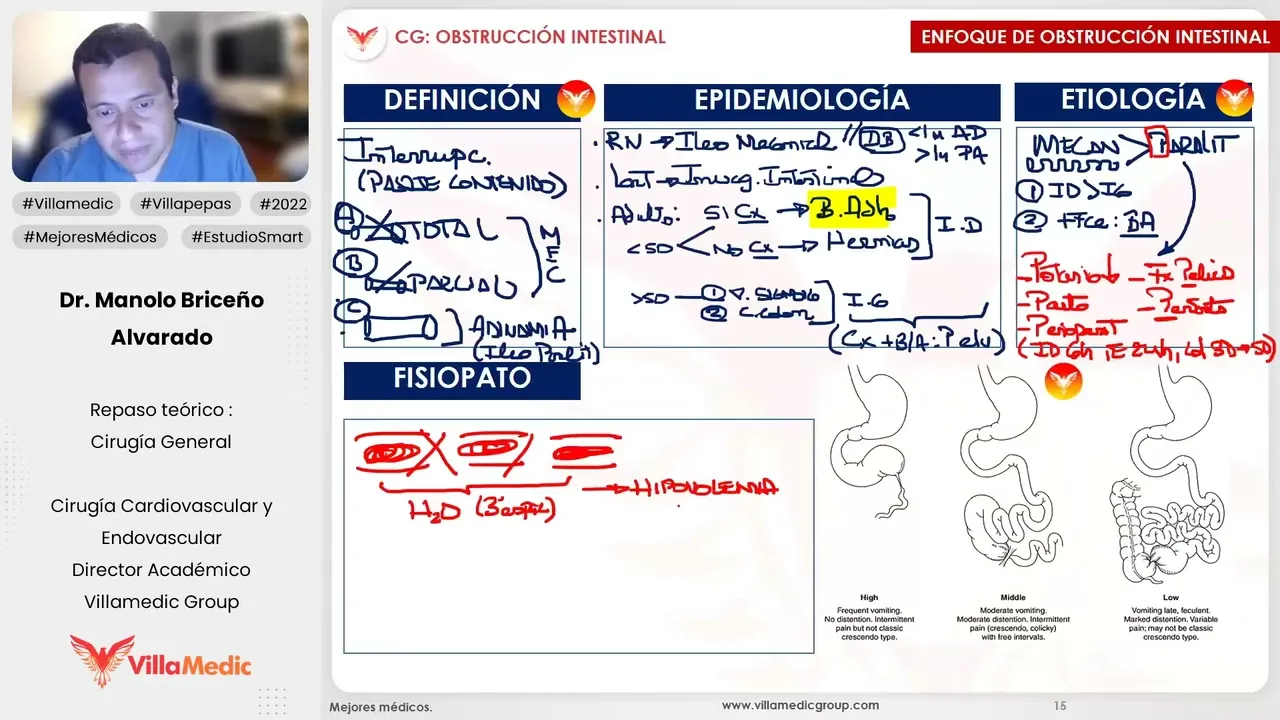 CG: OBSTRUCCIÓN INTESTINAL
ENFOQUE DE OBSTRUCCIÓN INTESTINAL
#Villamedic #Villapepas #2022
#MejoresMédicos #EstudioSmart
Dr. Manolo Briceño
Alvarado
Repaso teórico :
Cirugía General
Cirugía Cardiovascular y
Endovascular
Director Académico
Villamedic Group
VillaMedic
DEFINICIÓN
Interrupc.
(PASAJE CONTENIDO)
A TOTAL
B PARCIAL
MEC
C
ADINAMIA
EPIDEMIOLOGÍA
RN → Ileo Meconial // DB
Invag. Intestinal
Adulto: SI Cx → B. Adh
<50 NO Cx → Hernias
I.D
>50 ① V. SIGMOIDE
② C. Colon
I.G
(Cx + B/A: Pelv)
ETIOLOGÍA
MECAN > PARALIT
① ID > IG
② FFce: BA
- Fx Pelvis
- Parto
(ID 6h, E 24h, Col 3D → 5D)
FISIOPATO
H2O (3° espac) → HIPOVOLEMIA
High
Frequent vomiting.
No distention. Intermittent
pain but not classic
crescendo type.
Middle
Moderate vomiting.
Moderate distention. Intermittent
pain (crescendo, colicky)
with free intervals.
Low
Vomiting late, feculent.
Marked distention. Variable
pain; may not be classic
crescendo type.
Mejores médicos.
www.villamedicgroup.com
15